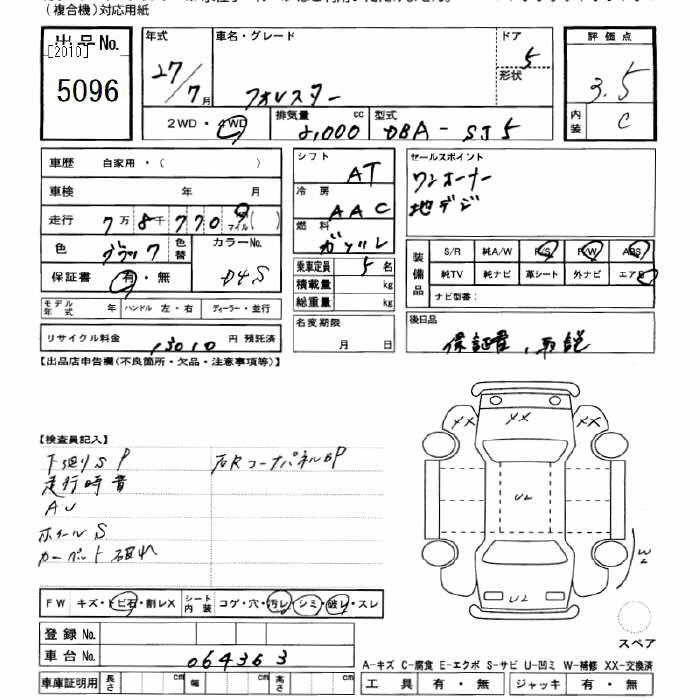 (複合機)対応用紙
出品No.
[2010]
5096
年式 27/7月
車名・グレード フォレスター
ドア 5
形状
2WD・4WD
排気量 2,000 cc
型式 DBA-SJ5
評価点 3.5
内装 C
車歴 自家用・( )
車検 年 月
走行 7万8千770 マイル( )
色 ブラック 色替
カラーNo. D4S
保証書 有・無
モデル年式 年 ハンドル 左・右 ディーラー・並行
リサイクル料金 13010 円 預託済
シフト AT
冷房 AAC
燃料 ガソリン
乗車定員 5名
積載量 kg
総重量 kg
名変期限 月 日
セールスポイント
ワンオーナー
地デジ
装備品
S/R 純A/W P/S P/W ABS
純TV 純ナビ 革シート 外ナビ エアB
ナビ型番:
後日品
保証書、取説
【出品店申告欄(不良箇所・欠品・注意事項等)】
【検査員記入】
下廻りSP
右RコーナーパネルBP
走行時音
AU
ホイールS
カーペット破れ
FW キズ・トビ石・割レX
シート内装 コゲ・穴・汚レ・シミ・破レ・スレ
登録No.
車台No. 064363
車庫証明用 長さ cm 幅 cm 高さ cm
XX
XX
XX
U2
U2
W2
スペア
A-キズ C-腐食 E-エクボ S-サビ U-凹ミ W-補修 XX-交換済
工具 有・無 ジャッキ 有・無